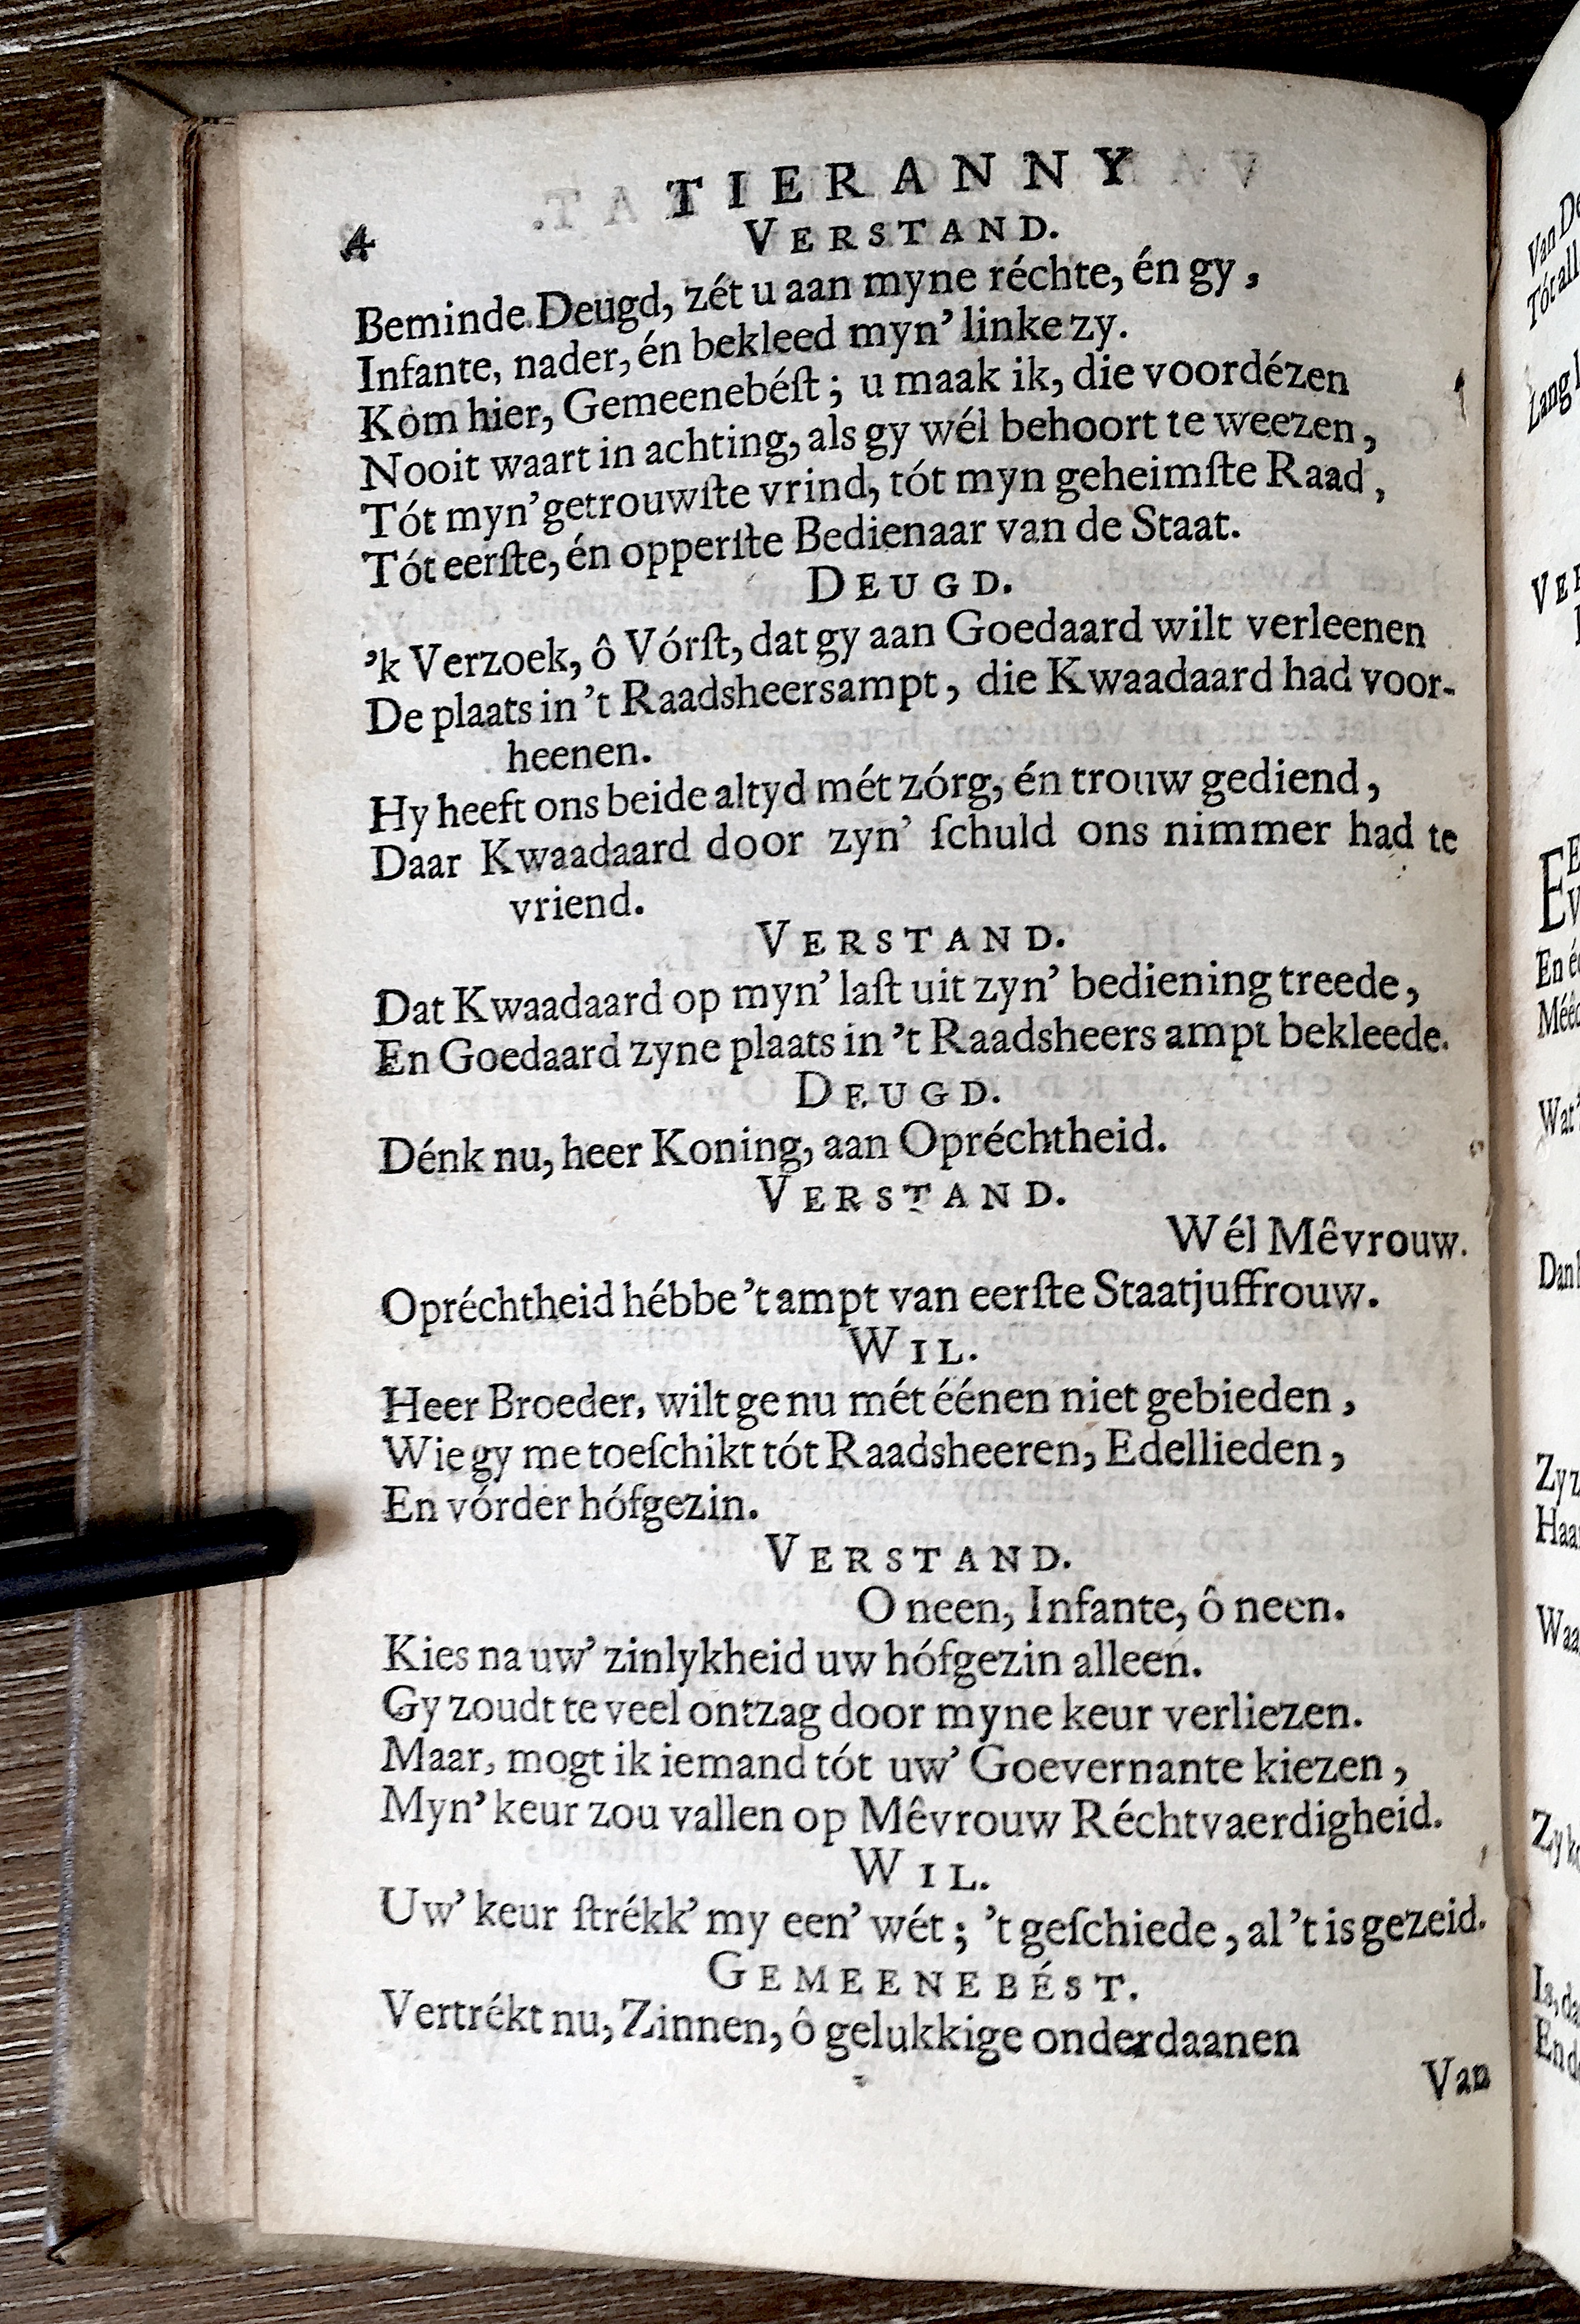 4
TIERANNY
VERSTAND.
Beminde Deugd, zét u aan myne réchte, én gy,
Infante, nader, én bekleed myn’ linke zy.
Kóm hier, Gemeenebéſt; u maak ik, die voordézen
Nooit waart in achting, als gy wél behoort te weezen,
Tót myn’ getrouwſte vrind, tót myn geheimſte Raad,
Tót eerſte, én opperſte Bedienaar van de Staat.
DEUGD.
’k Verzoek, ô Vórſt, dat gy aan Goedaard wilt verleenen
De plaats in ’t Raadsheersampt, die Kwaadaard had voor-
heenen.
Hy heeft ons beide altyd mét zórg, én trouw gediend,
Daar Kwaadaard door zyn’ ſchuld ons nimmer had te
vriend.
VERSTAND.
Dat Kwaadaard op myn’ laſt uit zyn’ bediening treede,
En Goedaard zyne plaats in ’t Raadsheers ampt bekleede.
DEUGD.
Dénk nu, heer Koning, aan Opréchtheid.
VERSTAND.
Wél Mêvrouw.
Opréchtheid hébbe ’t ampt van eerſte Staatjuffrouw.
WIL.
Heer Broeder, wilt ge nu mét éénen niet gebieden,
Wie gy me toeſchikt tót Raadsheeren, Edellieden,
En vórder hófgezin.
VERSTAND.
O neen, Infante, ô neen.
Kies na uw’ zinlykheid uw hófgezin alleen.
Gy zoudt te veel ontzag door myne keur verliezen.
Maar, mogt ik iemand tót uw’ Goevernante kiezen,
Myn’ keur zou vallen op Mêvrouw Réchtvaerdigheid.
WIL.
Uw’ keur ſtrékk’ my een’ wét; ’t geſchiede, al ’t is gezeid.
GEMEENEBÉST.
Vertrékt nu, Zinnen, ô gelukkige onderdaanen
Van